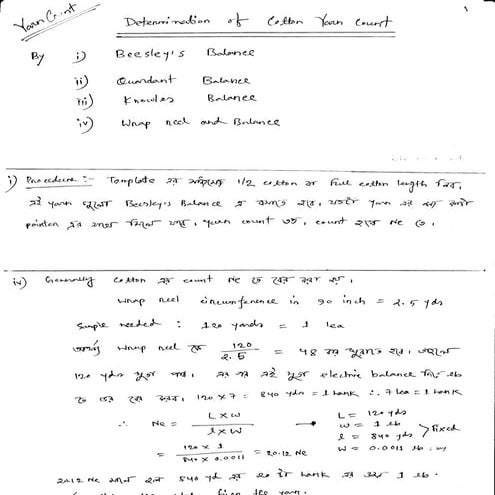 Yarn Count
1
Determination of Cotton Yarn Count
By i) Beesley's Balance
ii) Quardant Balance
iii) Knowles Balance
iv) Wrap reel and Balance
i) Procedure :- Template এর সাহায্যে 1/2 cotton or Full cotton length নিব,
এই yarn গুলো Beesley's Balance এ রাখতে হবে, যতটা Yarn এর জন্য
pointer এর সাথে মিলে যায়, yarn count তত, count হবে Ne তে,
iv) Generally cotton এর count Ne তে বের করা হয়।
Wrap reel circumference in 90 inch = 2.5 yds
Sample needed : 120 yards = 1 lea
অর্থাৎ wrap reel কে 120/2.5 = 48 বার ঘুরাতে হবে, তাহলে
120 yds সুতা পাব, এর পর এই সুতা electric balance নিয়ে lb
তে বের করব, 120 x 7 = 840 yds = 1 hank ∴ 7 lea = 1 hank
∴ Ne = L x w / l x W
= 120 x 1 / 840 x 0.0011 = 20.12 Ne
L = 120 yds
w = 1 lb
l = 840 yds
W = 0.0011 lb
fixed
20.12 Ne মানে হল 840 yd এর 20 টা hank এর ওজন 1 lb.